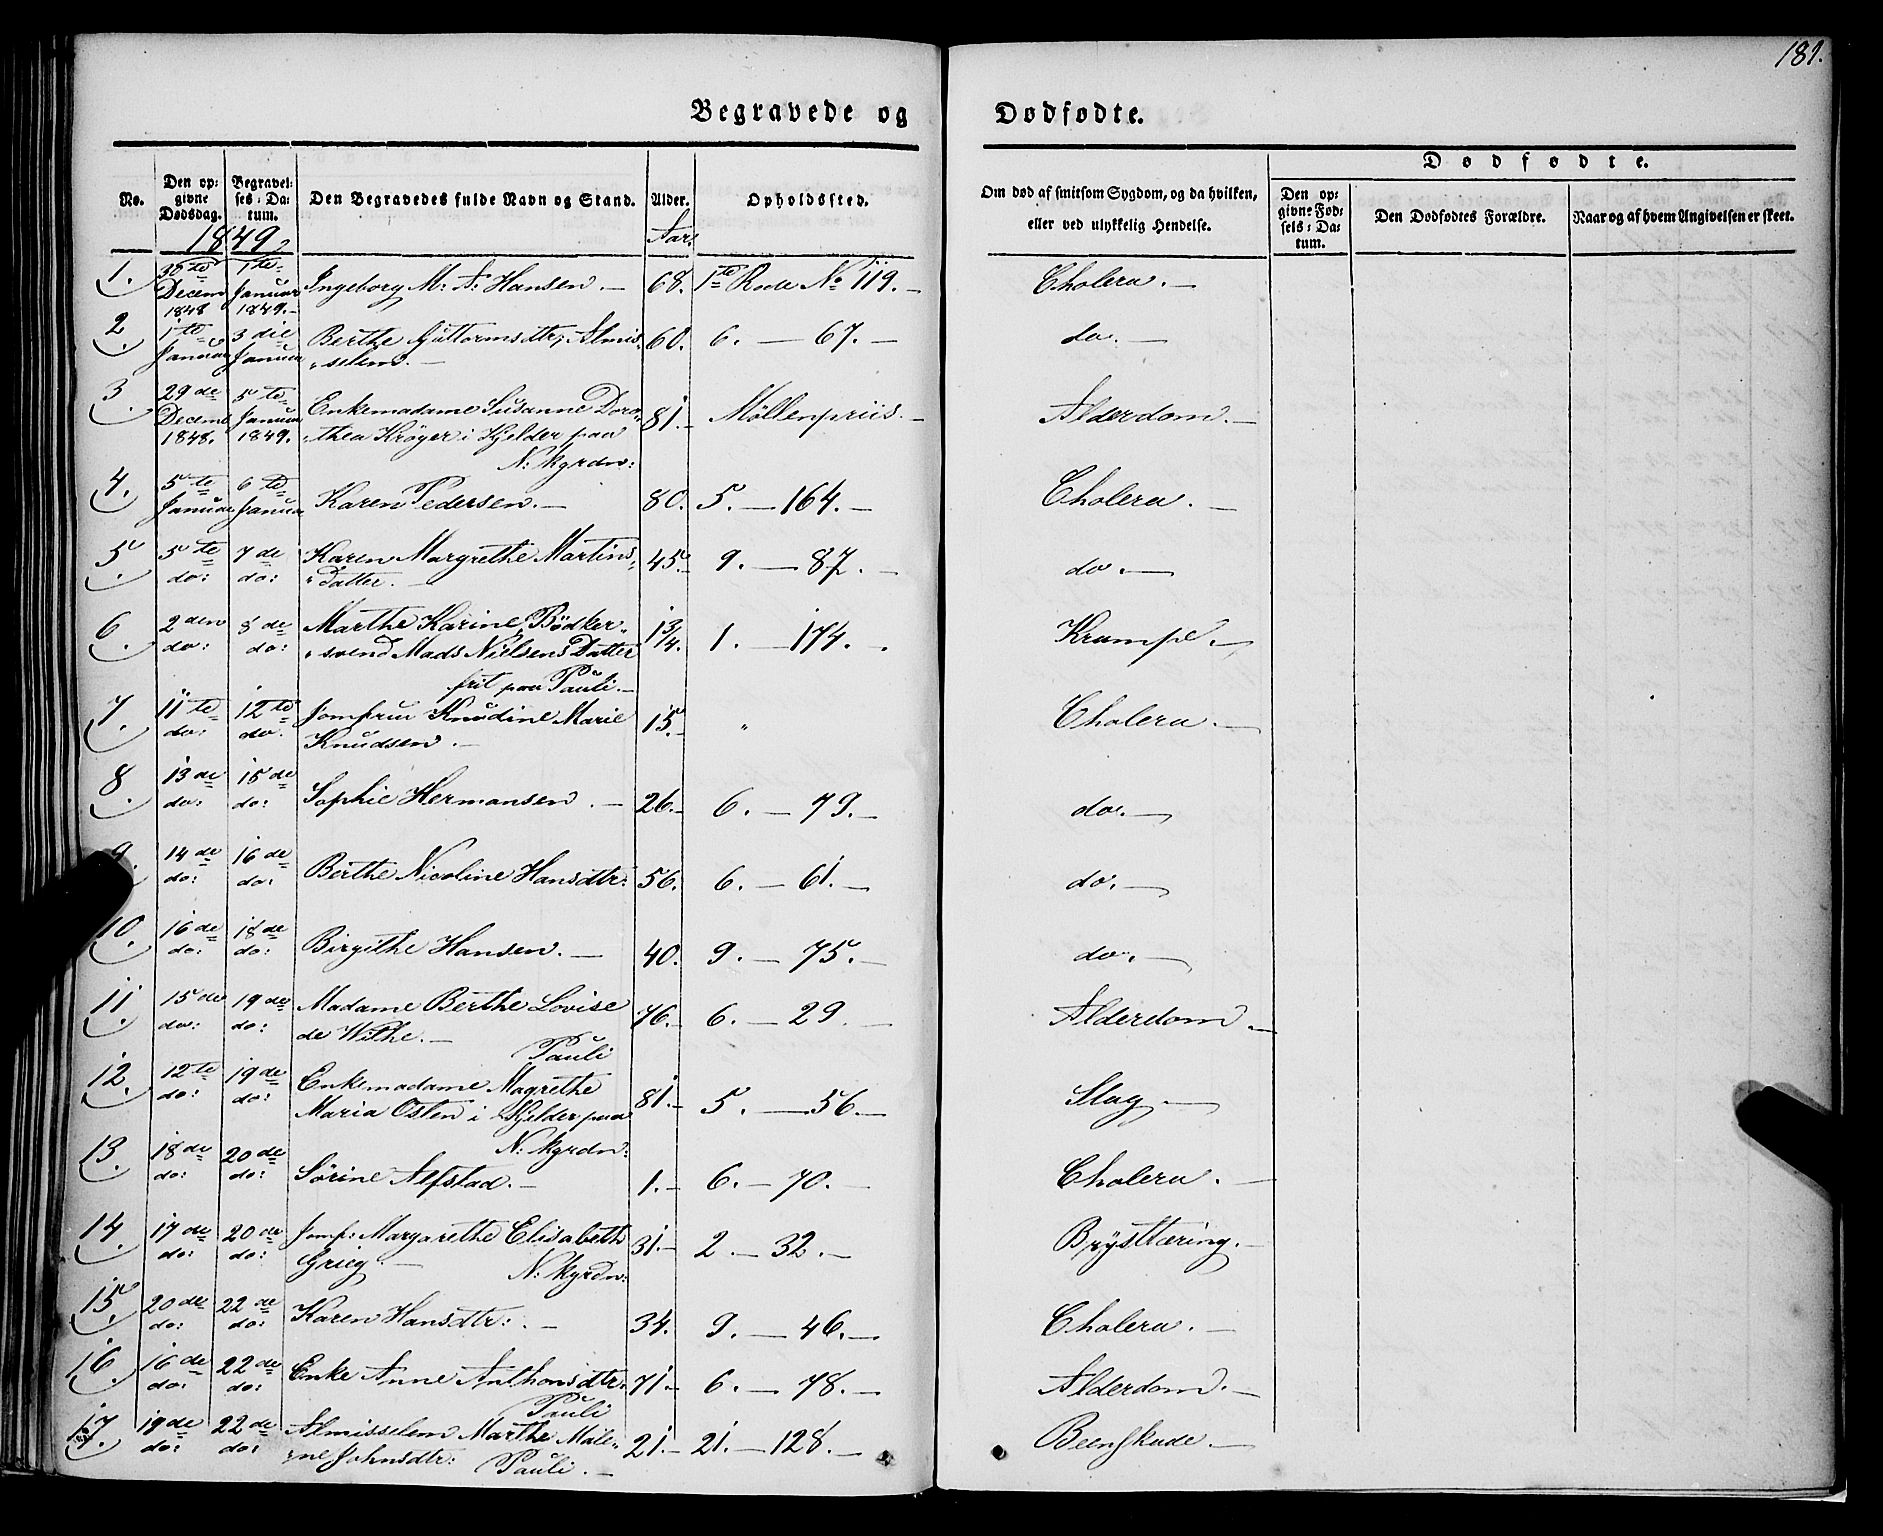 181.
Begravede og Dødfødte.
No. | Den opgivne Dødsdag. | Begravelses-Datum. | Den Begravedes fulde Navn og Stand. | Alder. | Opholdssted. | Om død af smitsom Sygdom, og da hvilken, eller ved ulykkelig Hendelse. | Dødfødte. | Den opgivne Fødsels-Datum. | Den Dødfødtes Forældre. | Naar og af hvem Angivelsen er skeet.
1849 | Aar:
1. | 30te Decem 1848 | 1te Januar 1849.- | Ingeborg M: A: Hansen. | 68. | 1te Rode No 119. | Cholera.
2. | 1te Januar | 3die Januar | Berthe Guttormsdtr, Almis-selem. | 60. | 6. — 67. | do.
3. | 29de Decemb 1848. | 5te Januar 1849. | Enkemadame Susanne Doro-thea Krøger i Kjelder paa N: kgrdn: | 81. | Möllenpriis. | Alderdom.
4. | 5te Januar | 6te Januar | Karen Pedersen. | 80. | 5. — 164. | Cholera.
5. | 5te do: | 7de do: | Karen Margrethe Martins-Datter. | 45. | 9. — 87. | do.
6. | 2den do: | 8de do: | Marthe Karine, Bødker-svend Mads Nielsens Datter frit paa Pauli. | 1 3/4. | 1. — 174. | Krampe.
7. | 11te do: | 12te do. | Jomfru Knudine Marie Knudsen. | 15. | " | Cholera.
8. | 13de do: | 15de do: | Sophie Hermansen. | 26. | 6. — 79. | do.
9. | 14de do: | 16de do: | Berthe Nicoline Hansdtr: | 56. | 6. — 61. | do.
10. | 16de do: | 18de do: | Birgithe Hansen. | 40. | 9. — 75. | do.
11. | 15de do: | 19de do: | Madame Berthe Lovise de Withe. Pauli | 76. | 6. — 29. | Alderdom.
12. | 12te do: | 19de do: | Enkemadame Magrethe Maria Osten i Kjelder paa N: kgrdn: | 81. | 5. — 56. | Slag.
13. | 18de do: | 20de do: | Sörine Alfstad. | 1. | 6. — 70. | Cholera.
14. | 17de do: | 20de do: | Jomf: Margarethe Elisabeth Grieg. N: kgrdn: | 31. | 2. — 32. | Brysttæring.
15. | 20de do: | 22de do: | Karen Hansdtr: | 34. | 9. — 46. | Cholera.
16. | 16de do: | 22de do: | Enke Anne Anthonsdtr. Pauli | 71. | 6. — 78. | Alderdom.
17. | 19de do: | 22de do: | Almisselem Marthe Male-ne Johnsdtr: Pauli. | 21. | 21. — 128. | Beenskade.